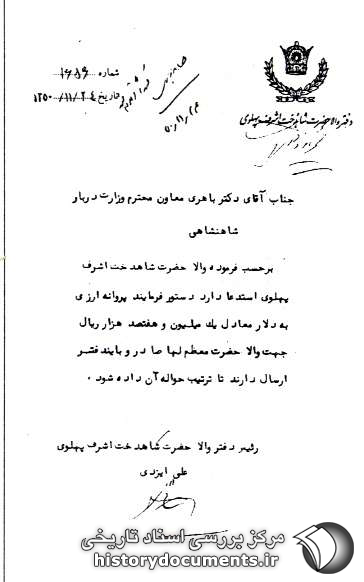 شماره ۱۶۸۹
تاریخ ۱۲۵۰/۱۱/۲۴
دفتر والاحضرت شاهدخت اشرف پهلوی
جناب آقای دکتر باهری معاون محترم وزارت دربار
شاهنشاهی
برحسب فرموده والا حضرت شاهدخت اشرف
پهلوی استدعا دارد دستور فرمایند پروانه ارزی
به دلار معادل یک میلیون و هفتصد هزار ریال
جهت والا حضرت معظم لها صادر و باین دفتر
ارسال دارند تا ترتیب حواله آن داده شود.
رئیس دفتر والا حضرت شاهدخت اشرف پهلوی
علی ایزدی
مرکز بررسی اسناد تاریخی
historydocuments.ir